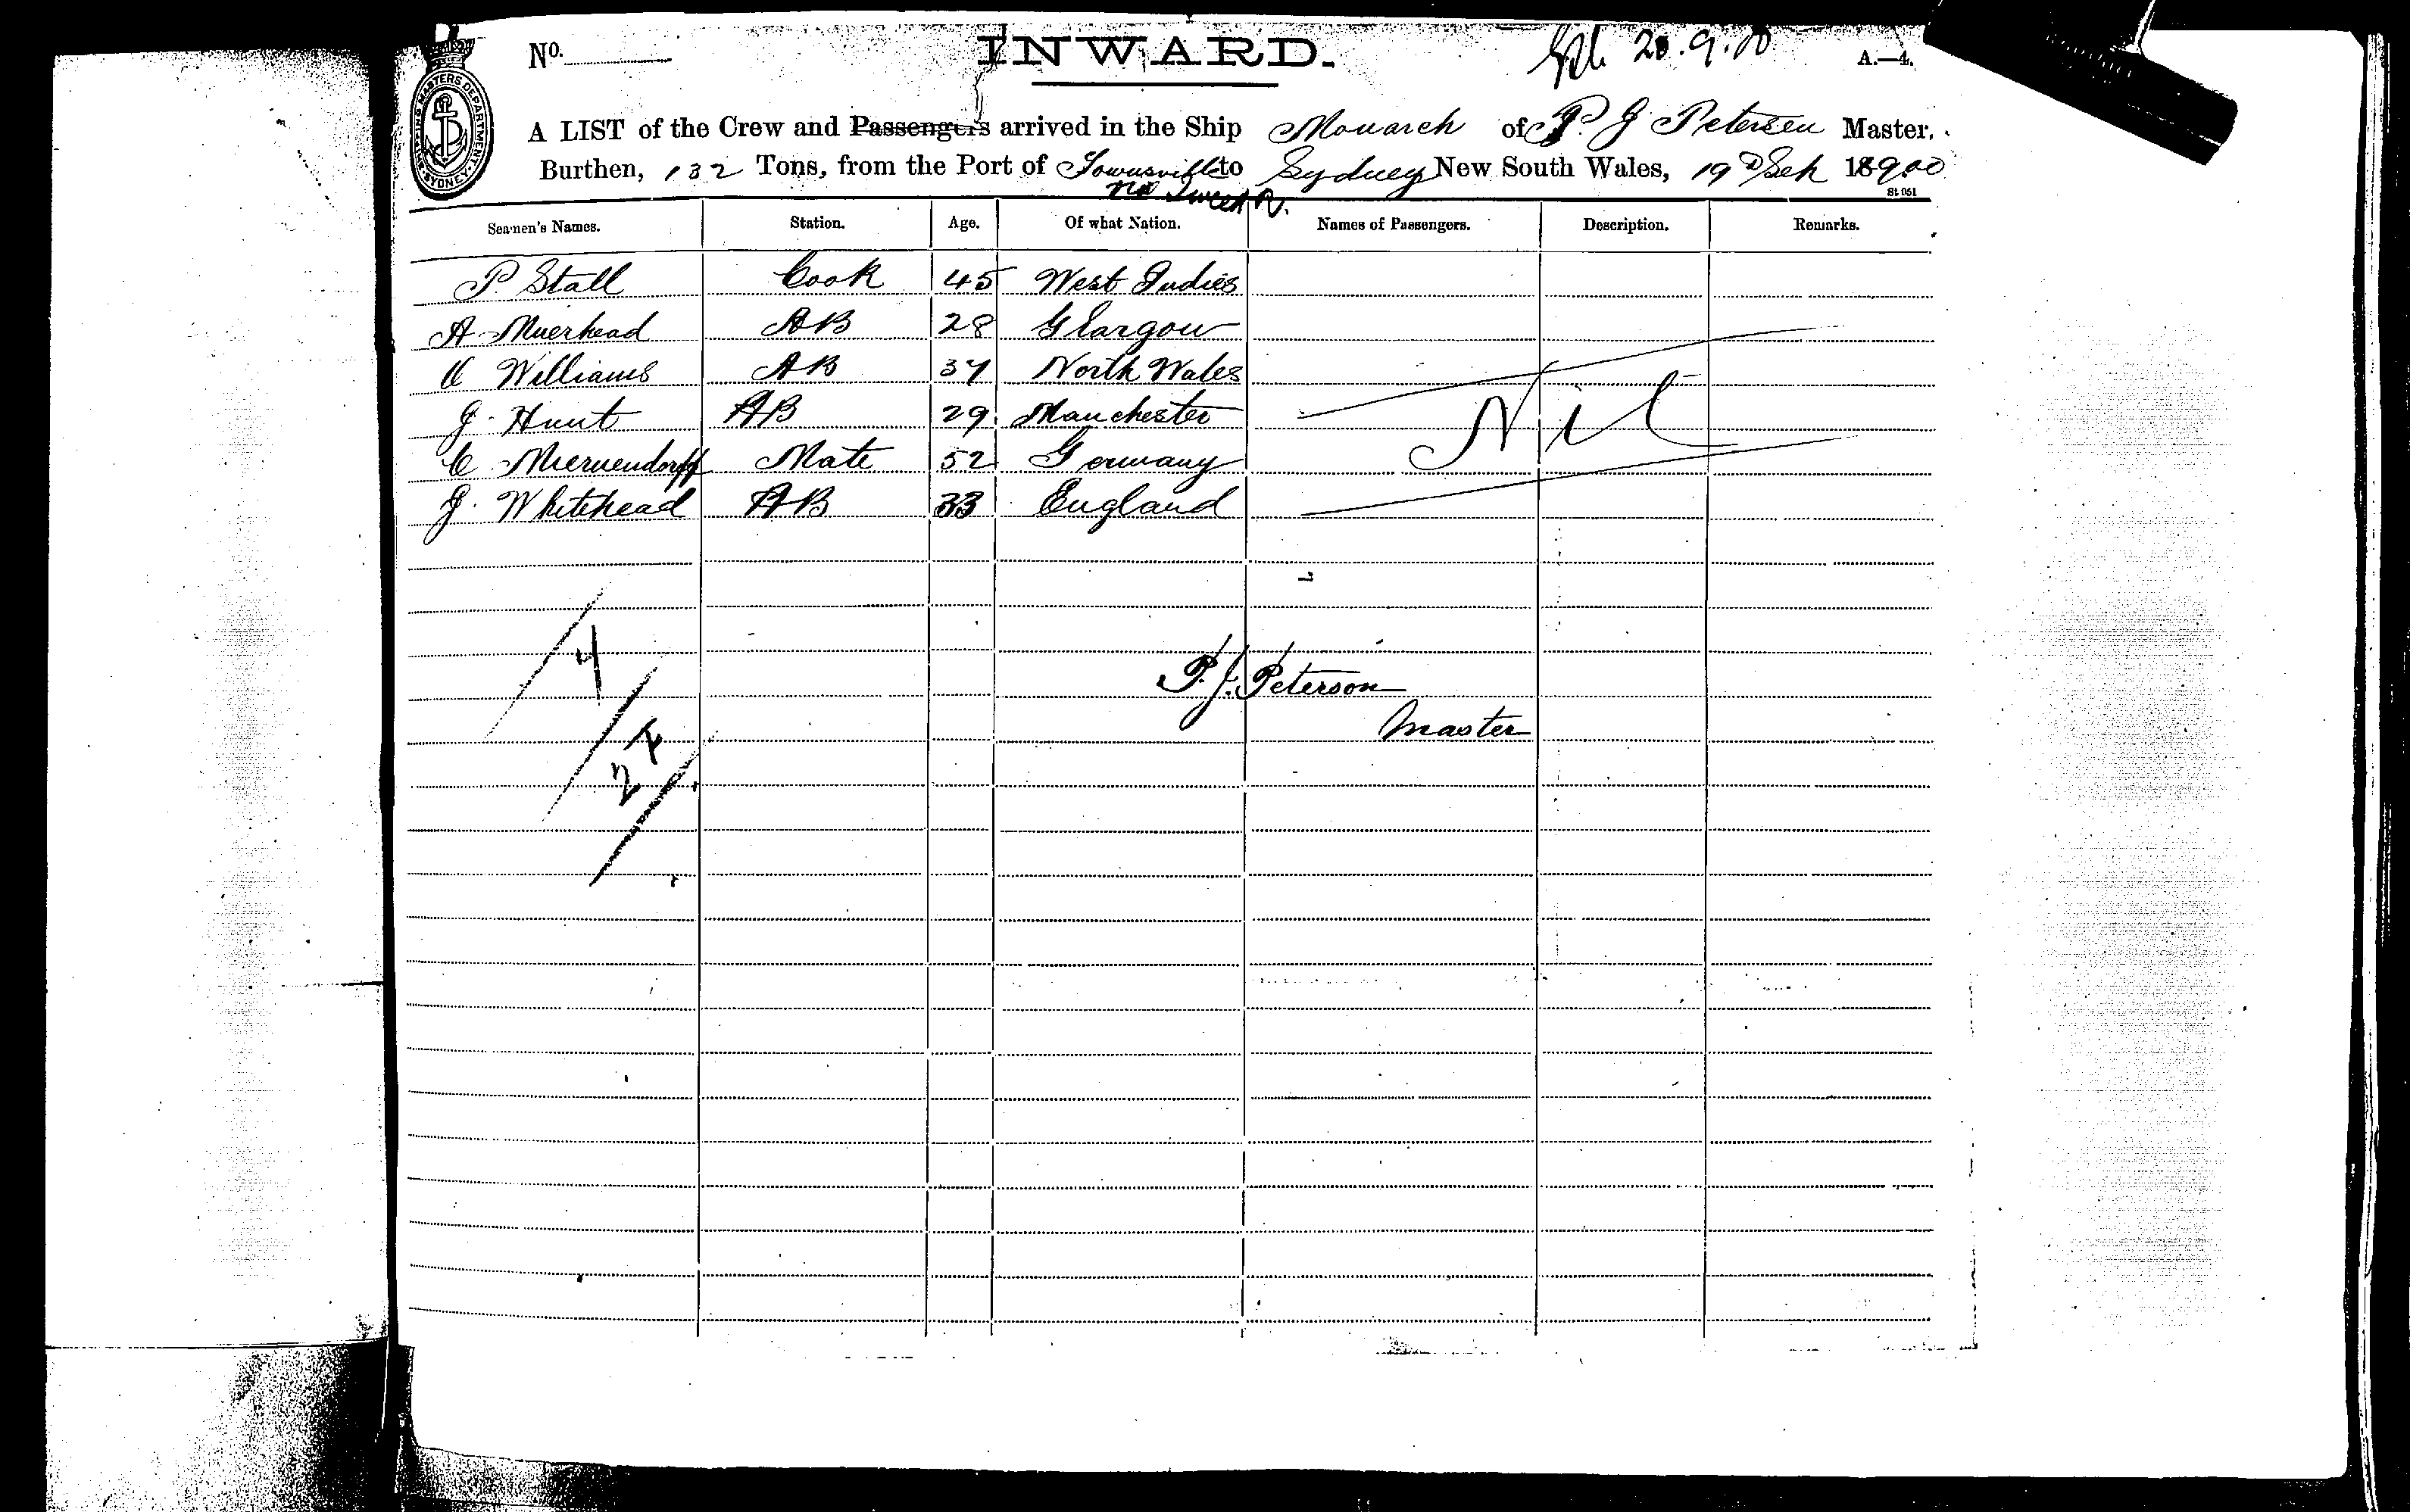 No. INWARD. 20.9.00 A.—4.
SHIPPING MASTERS DEPARTMENT SYDNEY
A LIST of the Crew and Passengers arrived in the Ship Monarch of P. J Petersen Master,
Burthen, 132 Tons, from the Port of Townsville to Sydney New South Wales, 19th Sep 1900
via Tweed R. St 051
Seamen's Names. Station. Age. Of what Nation. Names of Passengers. Description. Remarks.
P. Stall Cook 45 West Indies
A Muerhead AB 28 Glasgow
O Williams AB 37 North Wales
J. Hunt AB 29 Manchester Nil
C Miernendorff Mate 52 Germany
J. Whitehead AB 33 England
4
P. J. Peterson
Master
2